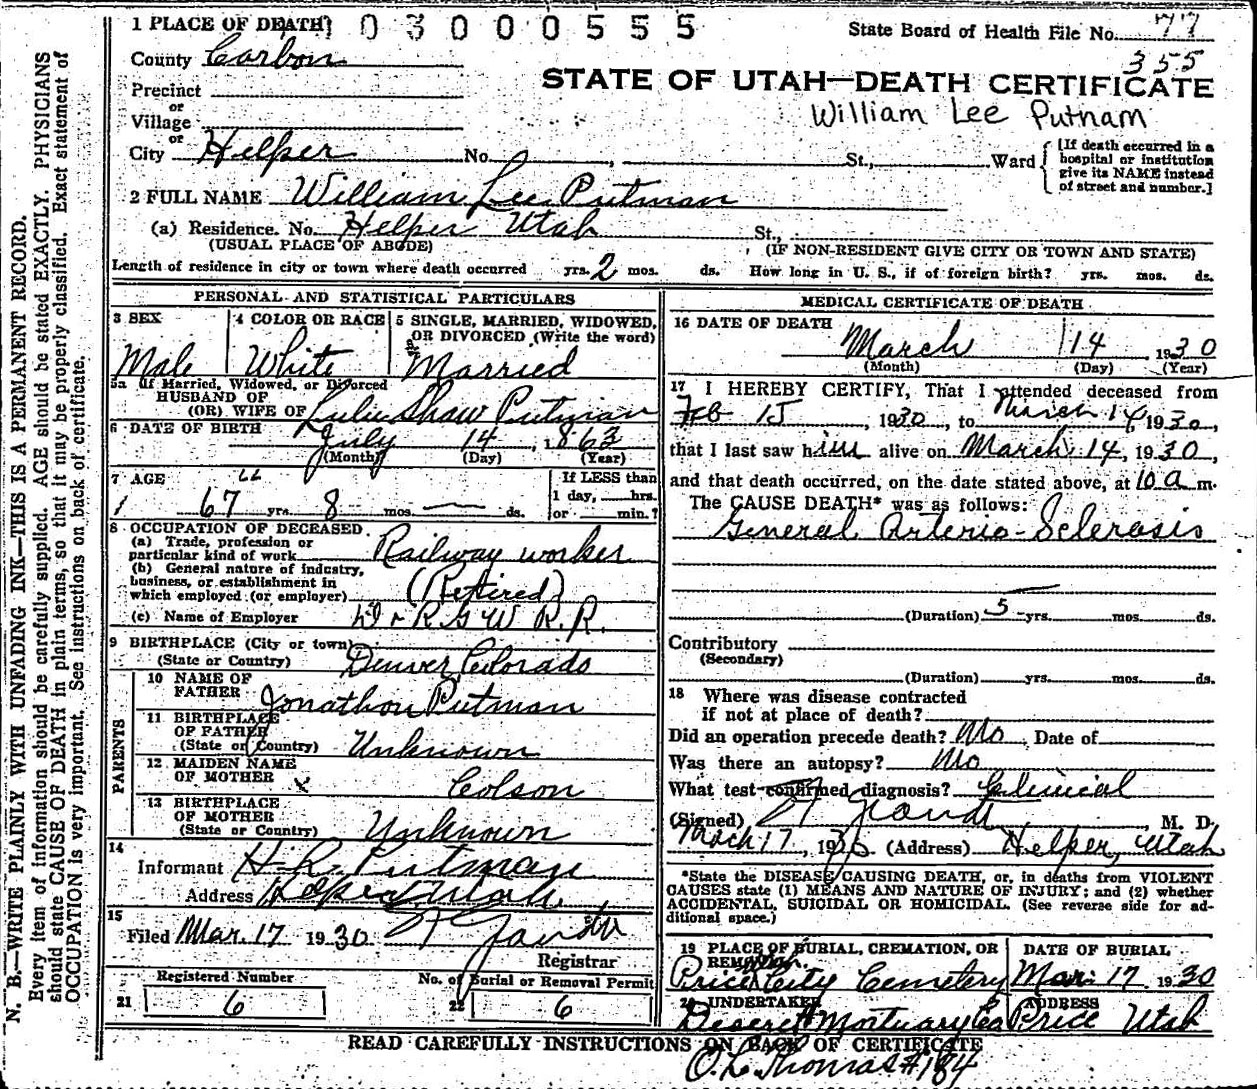 1 PLACE OF DEATH 03000555 State Board of Health File No. 77
355
County Carbon
STATE OF UTAH—DEATH CERTIFICATE
Precinct
or
William Lee Putnam
Village
or
City Helper No. , St., Ward
[If death occurred in a
hospital or institution
give its NAME instead
of street and number.]
2 FULL NAME William Lee Putman
(a) Residence. No. Helper Utah St.,
(USUAL PLACE OF ABODE) (IF NON-RESIDENT GIVE CITY OR TOWN AND STATE)
Length of residence in city or town where death occurred yrs. 2 mos. ds. How long in U. S., if of foreign birth? yrs. mos. ds.
PERSONAL AND STATISTICAL PARTICULARS
3 SEX 4 COLOR OR RACE 5 SINGLE, MARRIED, WIDOWED,
OR DIVORCED (Write the word)
Male White Married
5a If Married, Widowed, or Divorced
HUSBAND OF
(OR) WIFE OF Lulu Shaw Putman
6 DATE OF BIRTH July 14, 1863
(Month) (Day) (Year)
7 AGE If LESS than
67 yrs. 8 mos. — ds. 1 day, hrs.
or min.?
8 OCCUPATION OF DECEASED
(a) Trade, profession or
particular kind of work Railway worker
(b) General nature of industry,
business, or establishment in
which employed (or employer) (Retired)
(c) Name of Employer D & R G W R.R.
9 BIRTHPLACE (City or town)
(State or Country) Denver Colorado
PARENTS
10 NAME OF
FATHER Jonathon Putman
11 BIRTHPLACE
OF FATHER
(State or Country) Unknown
12 MAIDEN NAME
OF MOTHER x Colson
13 BIRTHPLACE
OF MOTHER
(State or Country) Unknown
14
Informant H. R. Putman
Address Helper Utah
15
Filed Mar. 17 1930
Registrar
Registered Number No. of Burial or Removal Permit
21 6 22 6
MEDICAL CERTIFICATE OF DEATH
16 DATE OF DEATH
March 14 1930
(Month) (Day) (Year)
17 I HEREBY CERTIFY, That I attended deceased from
Feb 15, 1930, to March 14 1930,
that I last saw him alive on March 14, 1930,
and that death occurred, on the date stated above, at 10 a m.
The CAUSE DEATH* was as follows:
General Arterio-Sclerosis
(Duration) 5 yrs. mos. ds.
Contributory
(Secondary)
(Duration) yrs. mos. ds.
18 Where was disease contracted
if not at place of death?
Did an operation precede death? No Date of
Was there an autopsy? No
What test confirmed diagnosis? Clinical
(Signed) , M. D.
March 17, 1930 (Address) Helper, Utah
*State the DISEASE CAUSING DEATH, or, in deaths from VIOLENT
CAUSES state (1) MEANS AND NATURE OF INJURY; and (2) whether
ACCIDENTAL, SUICIDAL OR HOMICIDAL. (See reverse side for ad-
ditional space.)
19 PLACE OF BURIAL, CREMATION, OR DATE OF BURIAL
REMOVAL
Price City Cemetery Mar. 17 1930
20 UNDERTAKER ADDRESS
Deseret Mortuary Co Price Utah
READ CAREFULLY INSTRUCTIONS ON BACK OF CERTIFICATE
O. L. Thomas #184
N. B.—WRITE PLAINLY WITH UNFADING INK—THIS IS A PERMANENT RECORD.
Every item of information should be carefully supplied. AGE should be stated EXACTLY. PHYSICIANS
should state CAUSE OF DEATH in plain terms, so that it may be properly classified. Exact statement of
OCCUPATION is very important. See instructions on back of certificate.